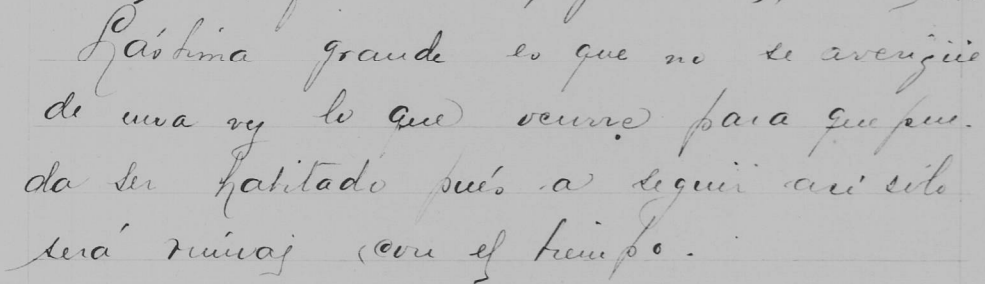 Lástima grande es que no se averigüe
de una vez lo que ocurre para que pue-
da ser habitado pués a seguir así sólo
será ruinas con el tiempo.